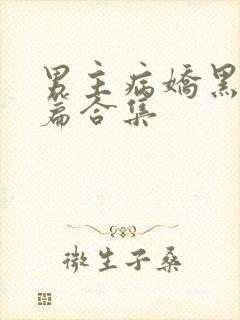 男主病嬌黑
篇合集
微生子桑